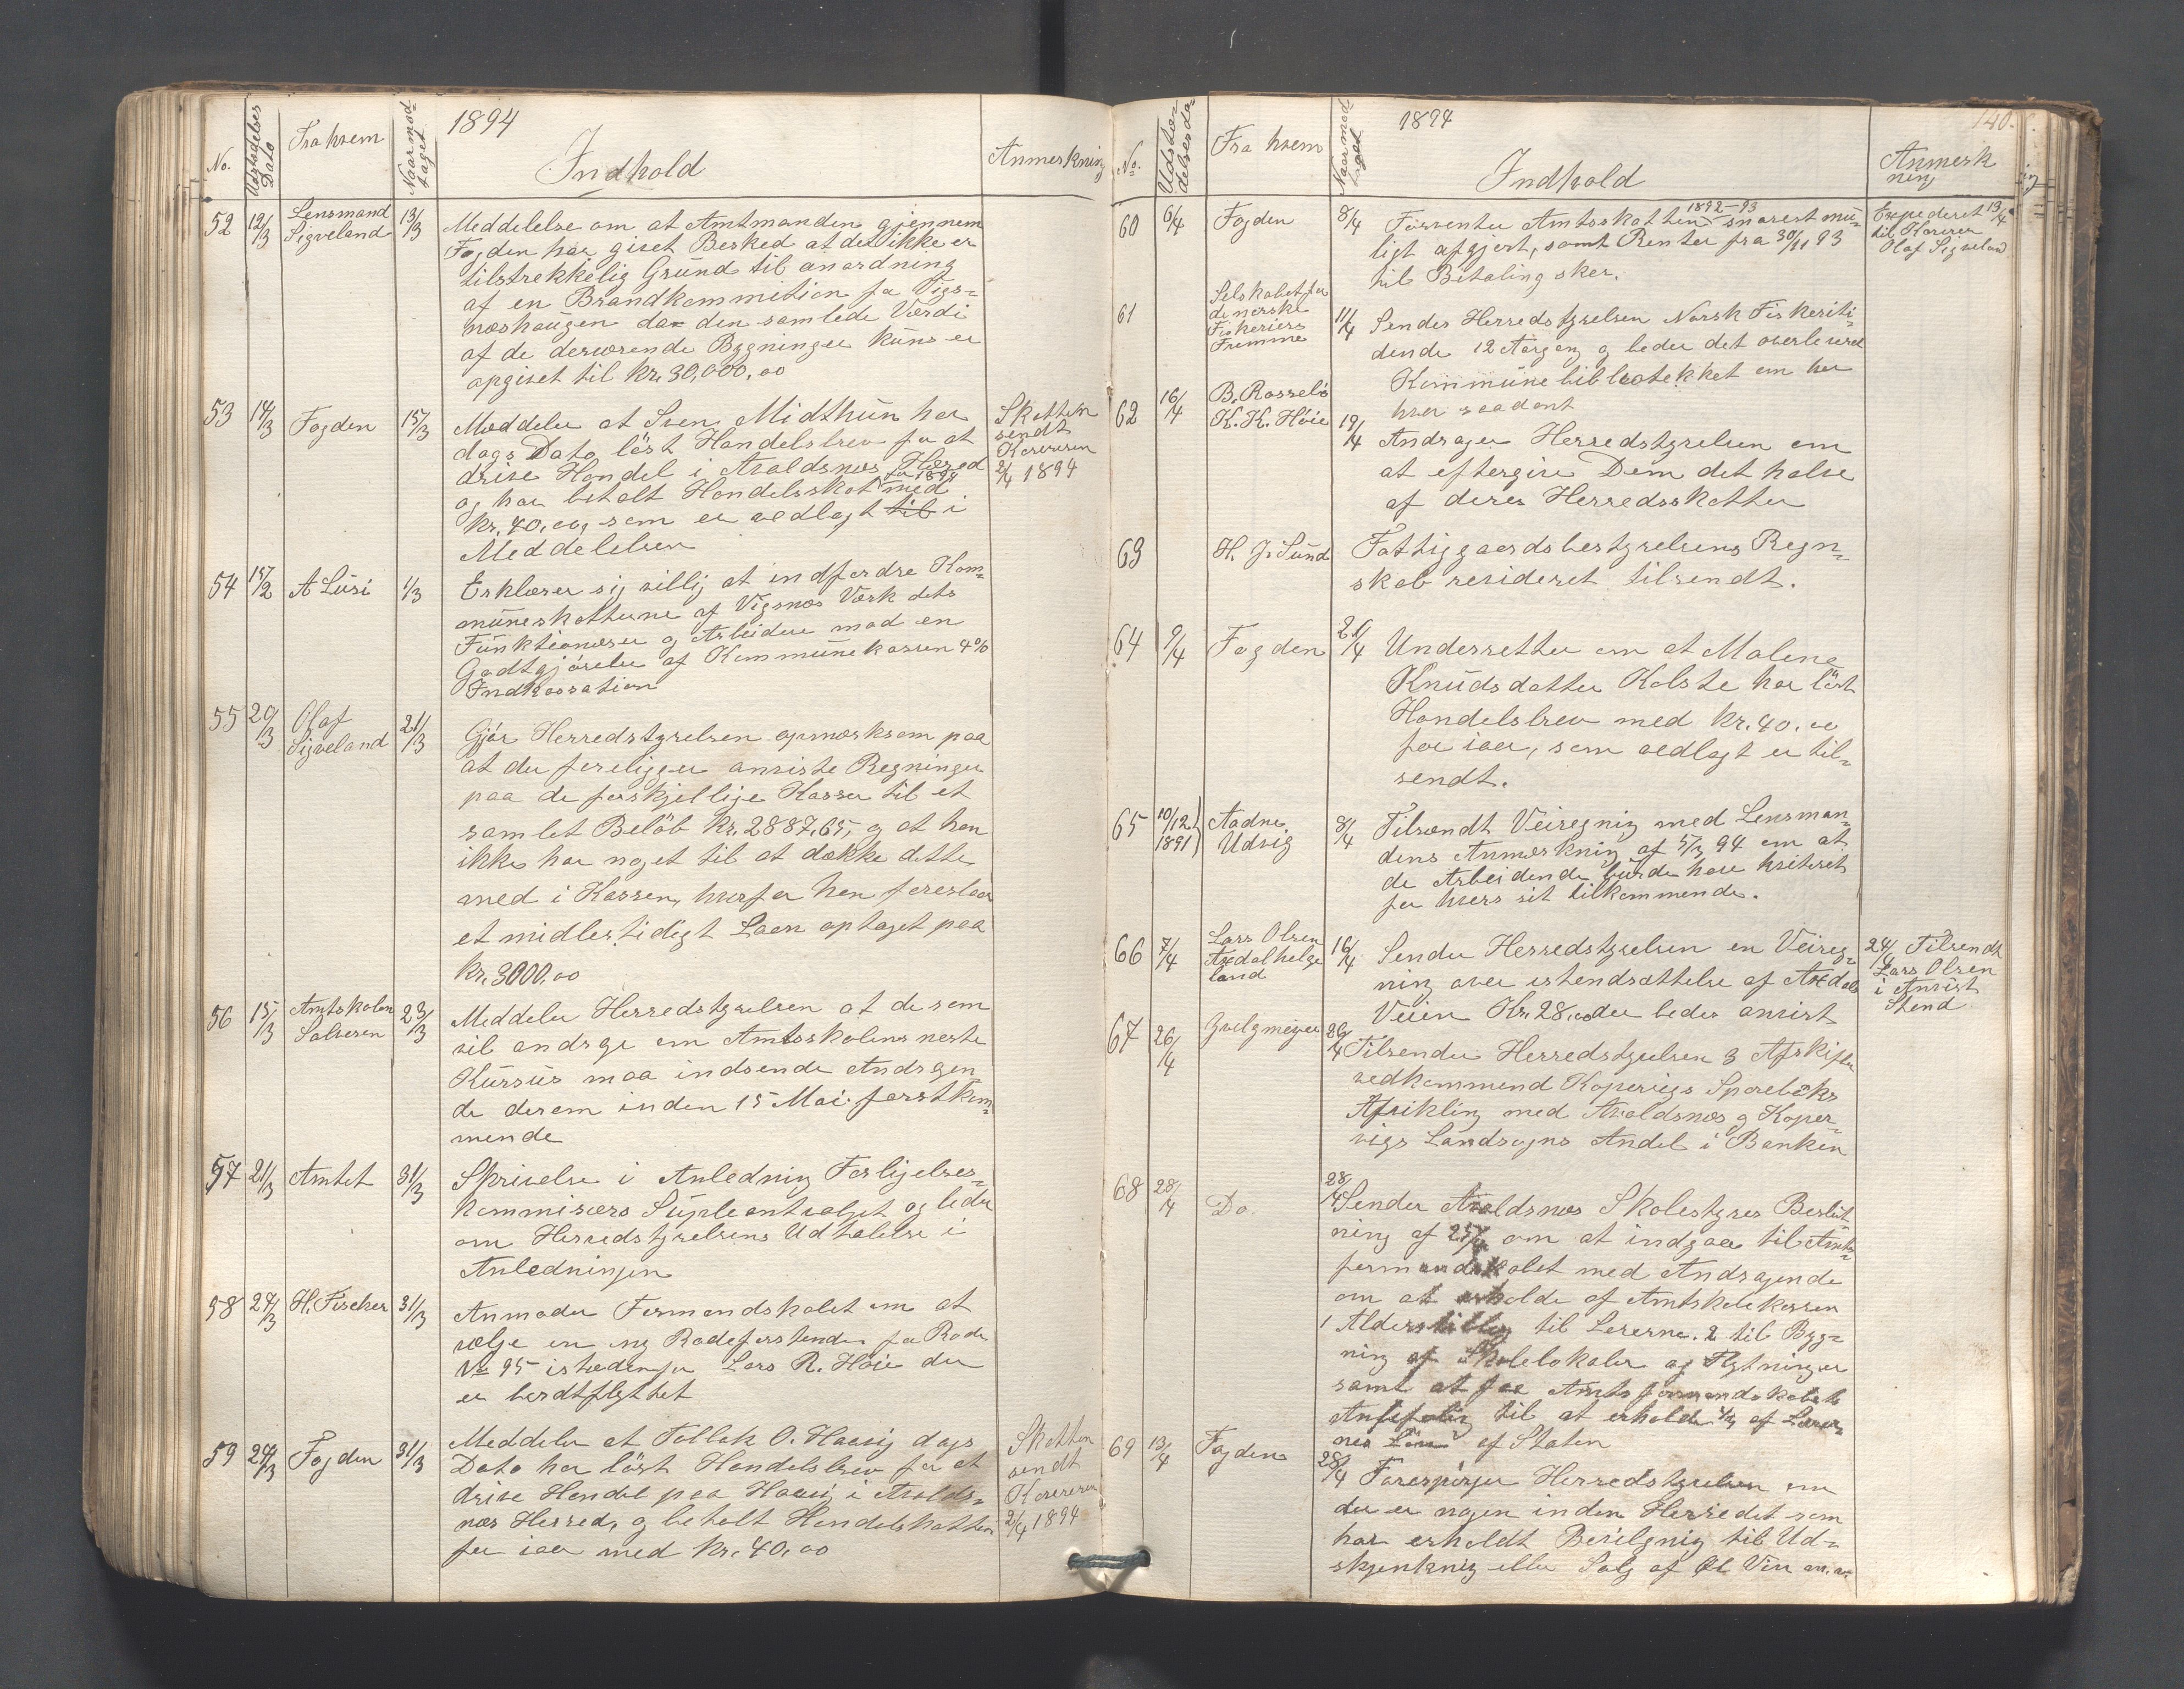 1894
No.
Udstedelses
Dato
Fra hvem
Naar mod-
taget
Indhold
Anmerkning
52 12/3 Lensmand
Sigveland
13/3
Meddelelse om at Amtmanden gjennem
Fogden har givet Besked at det ikke er
tilstrekkelig Grund til anordning
af en Brandkommition for Vigs-
næshaugen da den samlede Værdi
af de derværende Bygninger kuns er
opgivet til Kr. 30,000,00
53 14/3 Fogden 15/3
Meddeler at Sven Midthun har
dags Dato löst Handelsbrev for at
drive Handel i Avaldsnes Herred
og har betalt Handelsskat for 1894 med
Kr. 40,00, som er vedlagt til i
Meddelelsen
Skatten
sendt
Kasereren
2/4 1894
54 15/2 A Lüsi 1/3
Erklærer sig villig at indfordre Kom-
muneskatterne af Vigsnæs Værk dets
Funktionærer og Arbeidere mod en
Godtgjörelse af Kommunekassen 4%
Indkassation
55 20/3 Olaf
Sigveland
21/3
Gjör Herredstyrelsen opmerksom paa
at der foreligger anviste Regninger
paa de forskjellige Kasser til et
samlet Belöb Kr. 2887,65, og at han
ikke har noget til at dække dette
med i Kassen, hvorfor han foreslaar
et midlertidigt Laan optaget paa
Kr. 3000,00
56 15/3 Amtskolen
Salvesen
23/3
Meddeler Herredstyrelsen at de som
vil andrage om Amtsskolens neste
Kursus maa indsende Andragen-
de derom inden 15 Mai förstkom-
mende
57 21/3 Amtet 31/3
Skrivelse i Anledning Forligelses-
kommisærs Supleantvalget og beder
om Herredstyrelsens Udtalelse i
Anledningen
58 24/3 H. Fischer 31/3
Anmoder Formandskabet om at
vælge en ny Rodeforstander for Rode
No 95 istedenfor Lars R. Höie der
er bordtflyttet
59 24/3 Fogden 31/3
Meddeler at Tollak O. Haavig dags
Dato har löst Handelsbrev for at
drive Handel paa Haavig i Avalds-
nes Herred, og betalt Handelskatten
for iaar med Kr. 40,00
Skatten
sendt
Kasereren
2/4 1894
1894
140.
No.
Udstæ-
delsesda-
Fra hvem
Naar mod-
taget
Indhold
Anmerk
ning
60 6/4 Fogden 8/4
Forventer Amtsskatten 1892-93 snarest mu-
ligt afgjort, samt Renter fra 30/11 93
til Betaling sker.
Expederet 13/4
til Kaserer
Olaf Sigveland
61 Selskabet for
de norske
Fiskeriers
Fremme
11/4
Sender Herredstyrelsen Norsk Fiskeriti-
dende 12 Aargang og beder det overleveret
Kommunebibliotekket om her
haves saadant
62 16/4 B. Rosselö
K. K. Höie 19/4
Andrager Herredstyrelsen om
at eftergive Dem det halve
af deres Herredsskatter
63 H. J. Sund
Fattiggaardsbestyrelsens Regn-
skab revideret tilsendt.
64 9/4 Fogden 21/4
Underretter om at Malene
Knudsdatter Kolstø har löst
Handelsbrev med Kr. 40,00
for iaar, som vedlagt er til-
sendt.
65 10/12 1891 Aadne
Udvig
8/4
Tilsendt Veiregning med Lensman-
dens Anmerkning af 5/3 94 om at
de Arbeidende burde have kviteret
for hvers sit tilkommende.
66 7/4 Lars Olsen
Axdalhelge
land
16/4
Sender Herredstyrelsen en Veireg-
ning over istendsættelse af Axdals
Veien Kr. 28,00 der bedes anvist
24/4 Tilsendt
Lars Olsen
i Anvist
Stend
67 26/4 26/4
Tilsender Herredstyrelsen 3 Afskifter
vedkommend Kopervigs Sparebaks
Afvikling med Avaldsnes og Koper-
vigs Landsogns Andel i Banken
68 28/4 Do. 28/4
Sender Avaldsnes Skolestyres Beslut-
ning af 25/4 om at indgaa til Amts-
formandskabet med Andragende
om at erholde af Amtskolekassen
1 Alderstillæg til Lererne. 2 til Byg-
ning af Skolelokaler og Flytninger
samt at faa Amtsformandskabets
til at erholde 1/3 af Lærer-
nes Lön af Staten
69 13/4 Fogden 28/4
Forespörger Herredstyrelsen om
der er nogen inden Herredet som
har erholdt Bevilgnig til Ud-
skjenknig eller Salg af Öl Vin m.v.